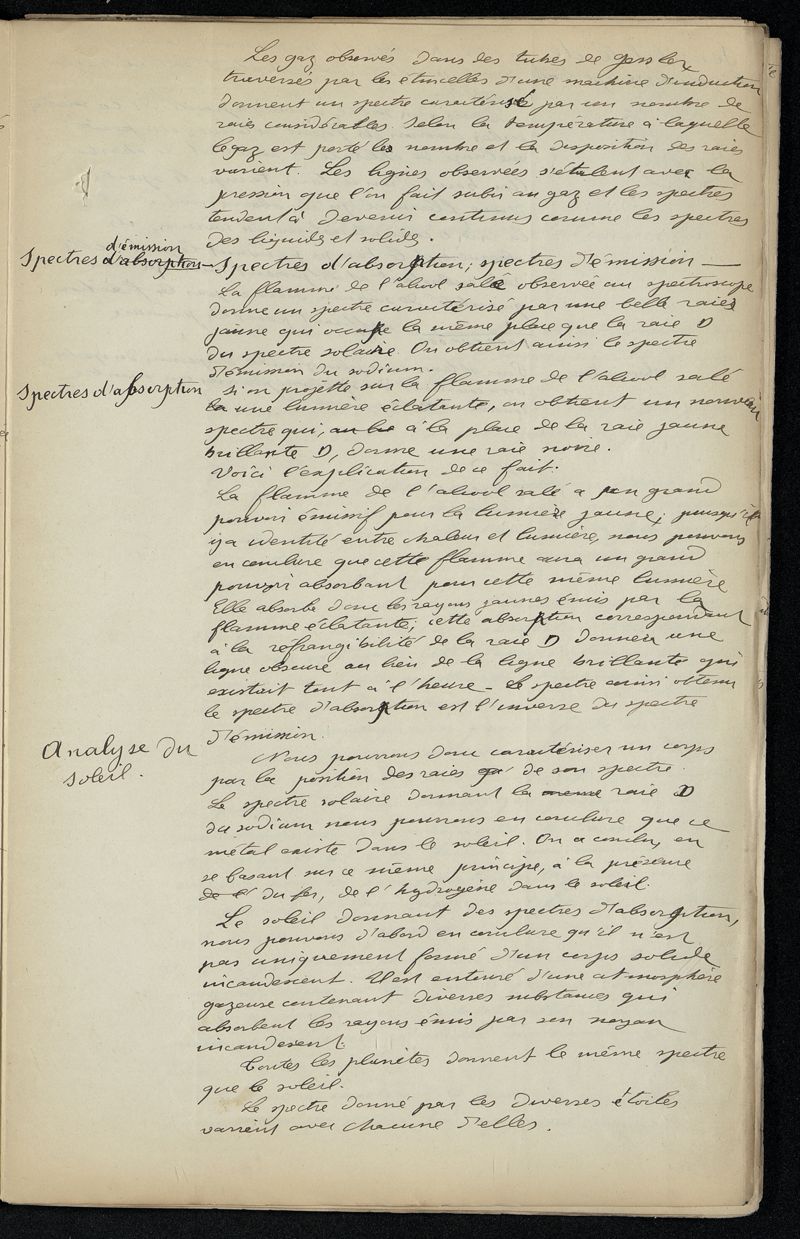 Les gaz observés dans des tubes de Gessler
traversés par les étincelles d'une machine d'induction
donnent un spectre caractérisé par un nombre de
raies considérables. Selon la température à laquelle
le gaz est porté le nombre et la disposition des raies
varient. Les lignes observées s'étalent avec la
pression que l'on fait subir au gaz et les spectres
tendent à devenir continus comme les spectres
des liquides et solides.
d'émission
Spectres d'absorption — Spectres d'absorption; spectres d'émission —
La flamme de l'alcool salé observée au spectroscope
donne un spectre caractérisé par une belle raie
jaune qui occupe la même place que la raie D
du spectre solaire. On obtient ainsi le spectre
d'émission du sodium.
Spectres d'absorption
Si on projette sur la flamme de l'alcool salé
la une lumière éclatante, on obtient un nouveau
spectre qui, au lie à la place de la raie jaune
brillante D, donne une raie noire.
Voici l'explication de ce fait.
La flamme de l'alcool salé a un grand
pouvoir émissif pour la lumière jaune; puisqu'il
y a identité entre chaleur et lumière, nous pouvons
en conclure que cette flamme aura un grand
pouvoir absorbant pour cette même lumière
Elle absorbe donc les rayons jaunes émis par la
flamme éclatante; cette absorption correspondant
à la réfrangibilité de la raie D donnera une
ligne obscure au lieu de la ligne brillante qui
existait tout à l'heure — Le spectre ainsi obtenu
le spectre d'absorption est l'inverse du spectre
d'émission.
Analyse du
soleil.
Nous pourrons donc caractériser un corps
par la position des raies de son spectre.
Le spectre solaire donnant la meme raie D
du sodium nous pourrons en conclure que ce
métal existe dans le soleil. On a conclu, en
se basant sur ce même principe, à la présence
de l' du fer, de l'hydrogène dans le soleil.
Le soleil donnant des spectres d'absorption,
nous pouvons d'abord en conclure qu'il n'est
pas uniquement formé d'un corps solide
incandescent. Il est entouré d'une atmosphère
gazeuse contenant diverses substances qui
absorbent les rayons émis par son noyau
incandescent.
Toutes les planètes donnent le même spectre
que le soleil.
Le spectre donné par les diverses étoiles
varient avec chacune d'elles.